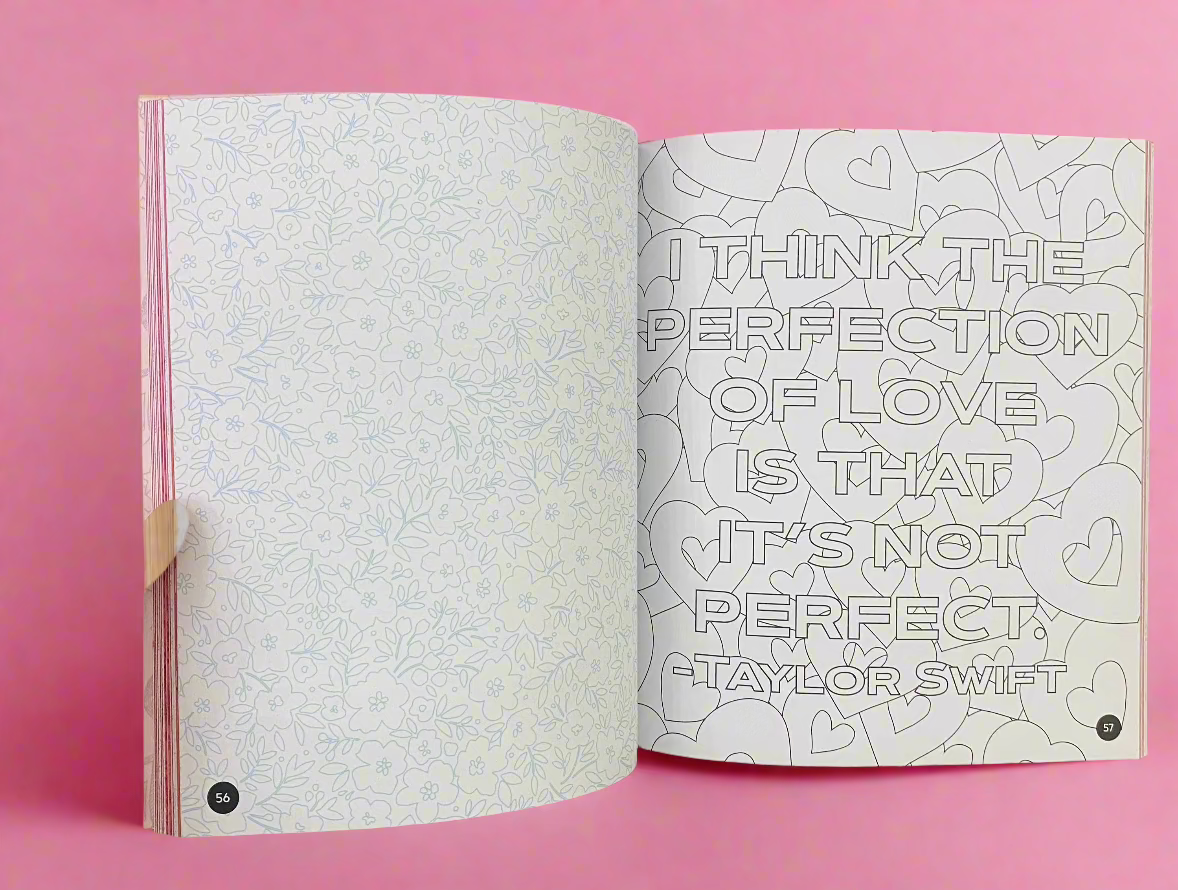 56
I THINK THE
PERFECTION
OF LOVE
IS THAT
IT'S NOT
PERFECT.
-TAYLOR SWIFT
57